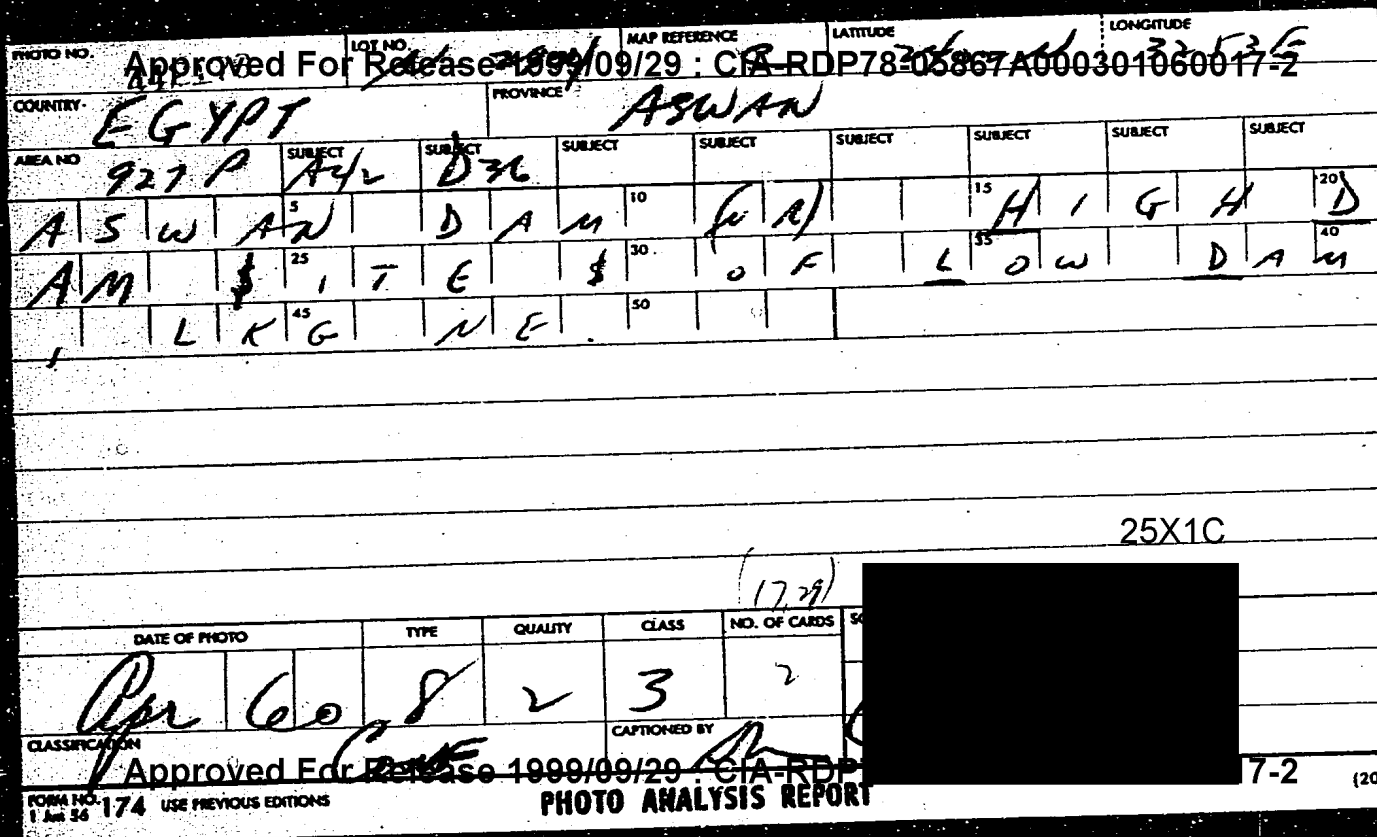 PHOTO NO. LOT NO. MAP REFERENCE LATITUDE LONGITUDE
Approved For Release 1999/09/29 : CIA-RDP78-05867A000301060017-2
COUNTRY EGYPT PROVINCE ASWAN
AREA NO 927 P SUBJECT SUBJECT D36 SUBJECT SUBJECT SUBJECT SUBJECT SUBJECT SUBJECT
5 10 15 20
ASWAN DAM (NR) HIGH D
25 30 35 40
AM $ITE $ OF LOW DAM
45 50
, LKG NE.
25X1C
(17,29)
DATE OF PHOTO TYPE QUALITY CLASS NO. OF CARDS
Apr 60 8 2 3 2
CLASSIFICATION CONF CAPTIONED BY
Approved For Release 1999/09/29 : CIA-RDP 7-2
FORM NO. 174 USE PREVIOUS EDITIONS PHOTO ANALYSIS REPORT (20
1 Jun 56